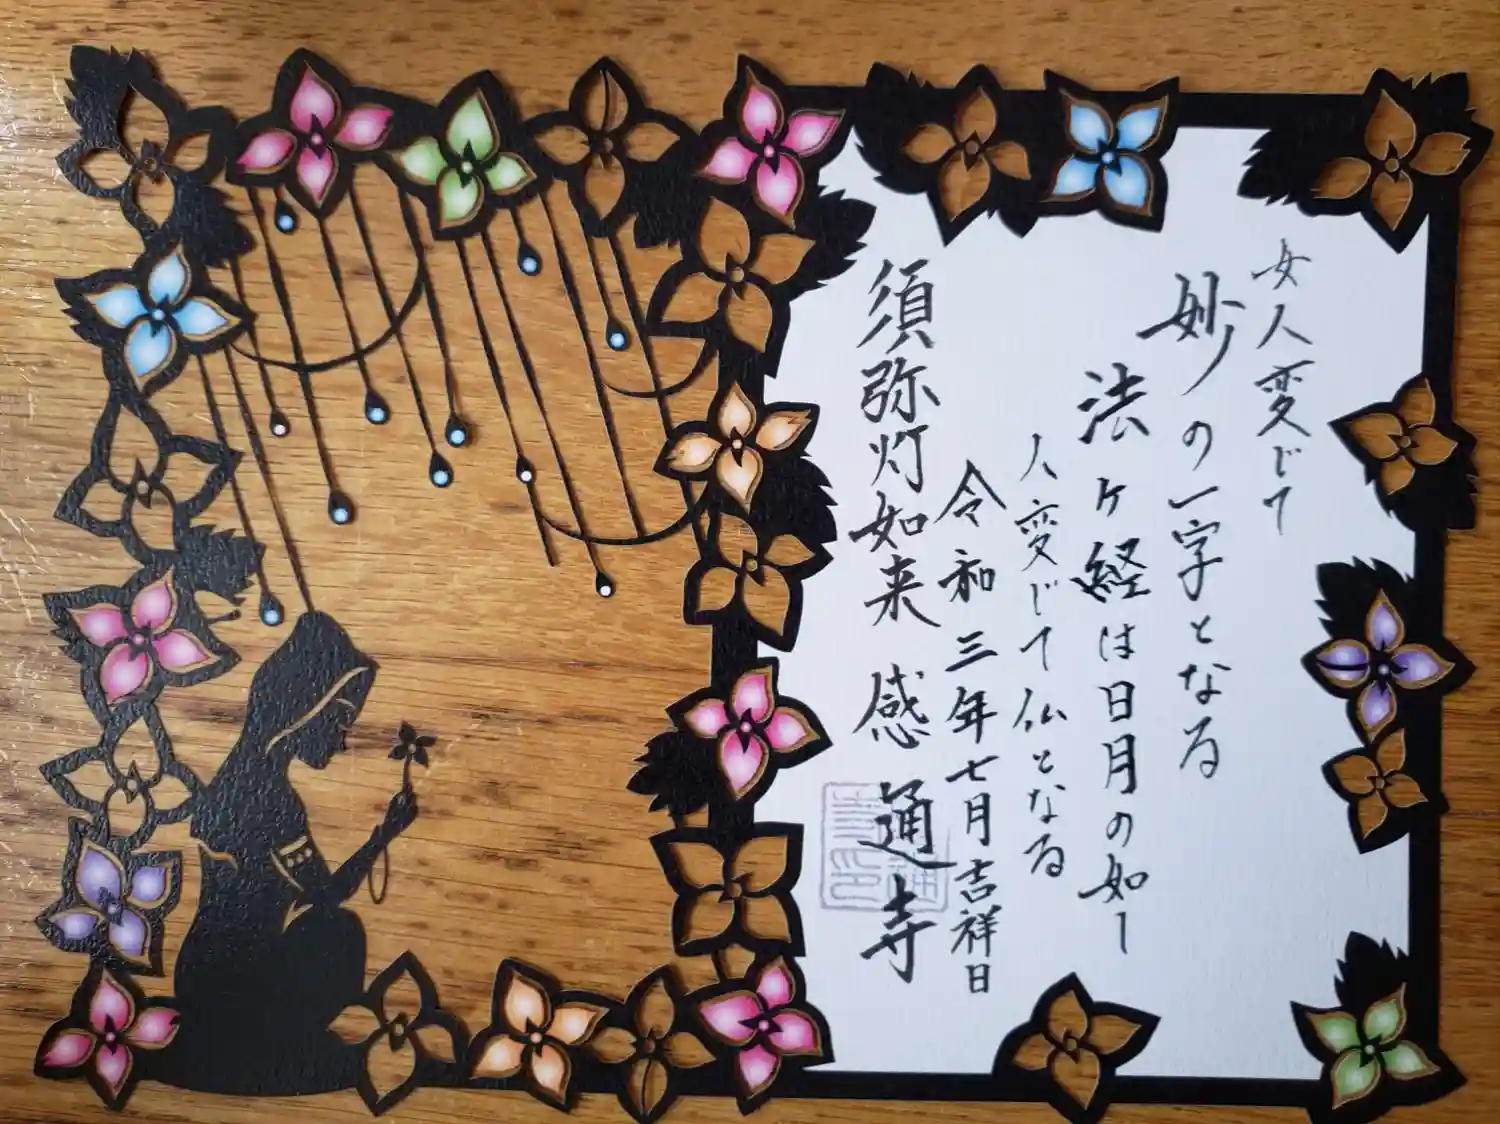 女人変じて
妙の一字となる
法ヶ経は日月の如し
人変じて仏となる
令和三年七月吉祥日
須弥灯如来 感通寺